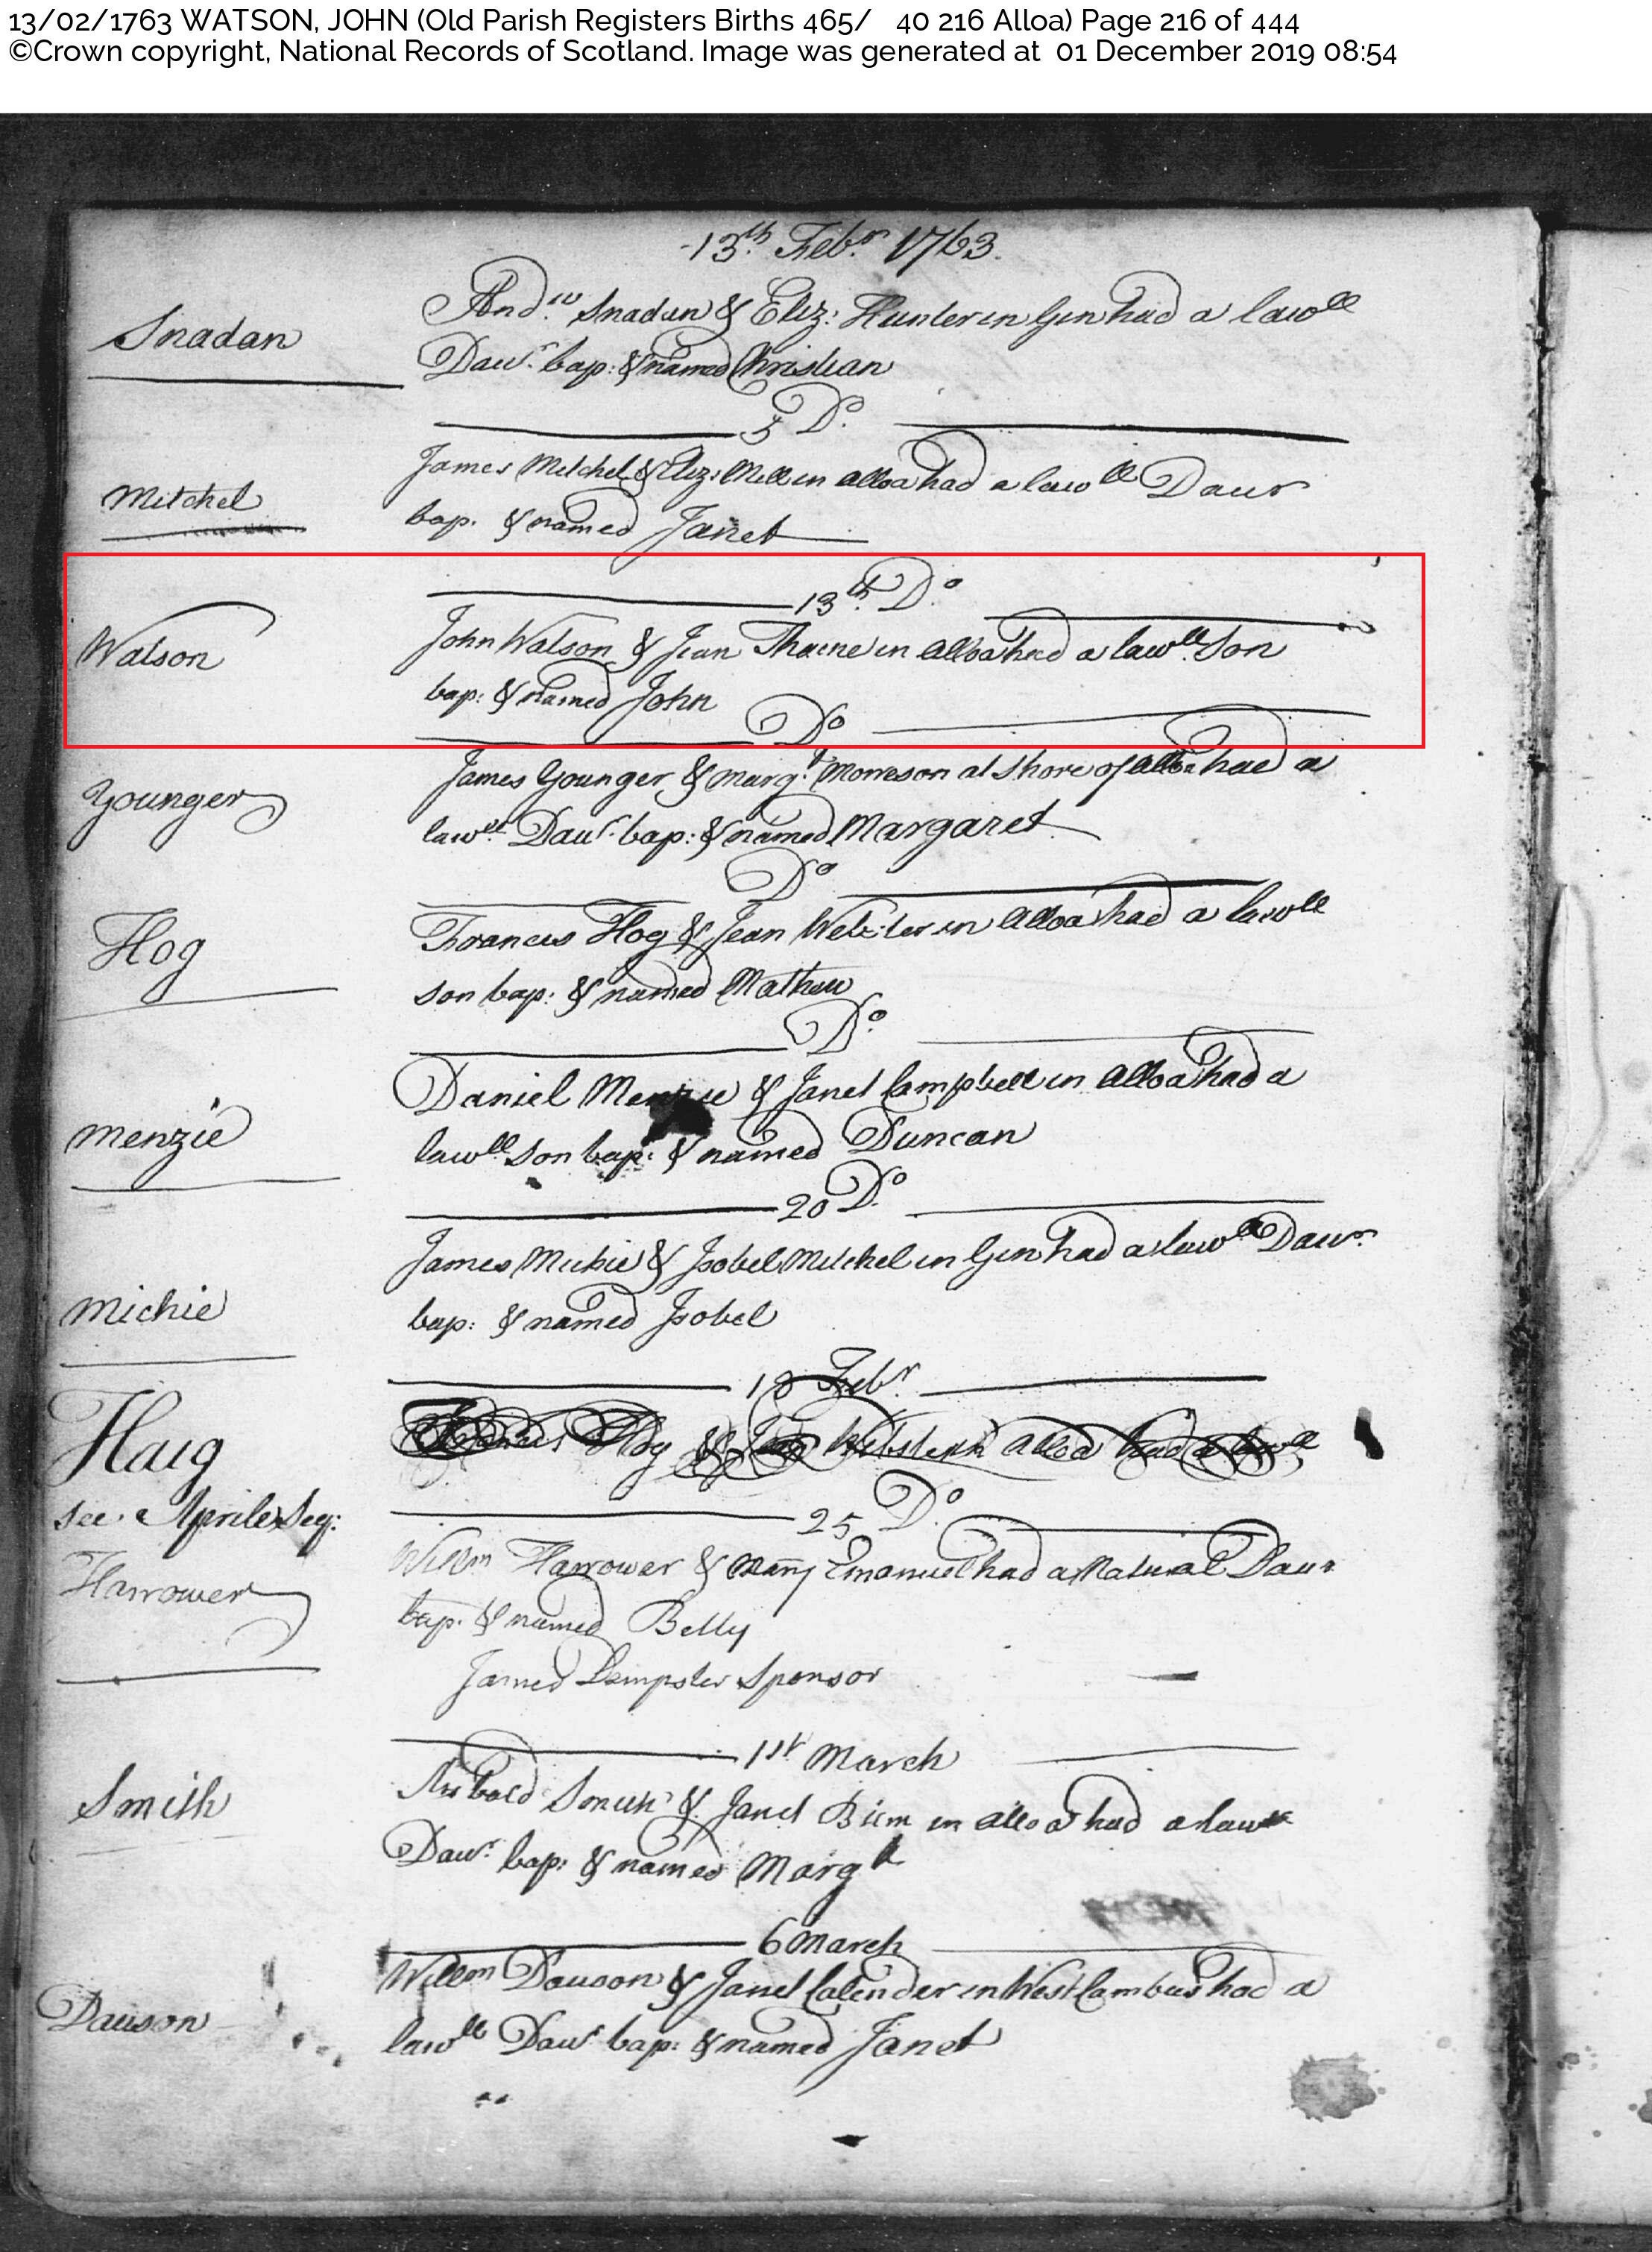 13/02/1763 WATSON, JOHN (Old Parish Registers Births 465/ 40 216 Alloa) Page 216 of 444
©Crown copyright, National Records of Scotland. Image was generated at 01 December 2019 08:54
13th. Febr. 1763.
Snadan
Andw. Snadan & Eliz: Hunter in had a lawll
Dawr. bap: & named Christian
5 Do.
Mitchel
James Mitchel & Eliz: Mill in alloa had a lawll Dawr
bap. & named Janet
13th. Do.
Watson
John Watson & Jean Thaine in alloa had a lawll. Son
bap: & named John
Do
Younger
James Younger & Margt. Morreson at Shore of alloa had a
lawll Dawr. bap: & named Margaret
Do
Hog
Francis Hog & Jean Webster in alloa had a lawll
son bap: & named Mathew
Do.
Menzie
Daniel Menzie & Janet Campbell in alloa had a
lawll son bap: & named Duncan
20 Do.
Michie
James Michie & Isobel Mitchel in had a lawll Dawr.
bap: & named Isobel
13 Febr.
Haig
Francis Hog & Jean Webster in alloa had a lawll
see Aprile Seq:
25 Do.
Harrower
Willm Harrower & Mary Emanuel had a Natural Dawr
bap. & named Betty
James Dempster Sponsor
1st March
Smith
Smith & Janet in alloa had a lawll
Dawr. bap: & named Margt
6 March
Dauson
Willm Dauson & Janet Calender in West Cambus had a
lawll Dawr bap: & named Janet